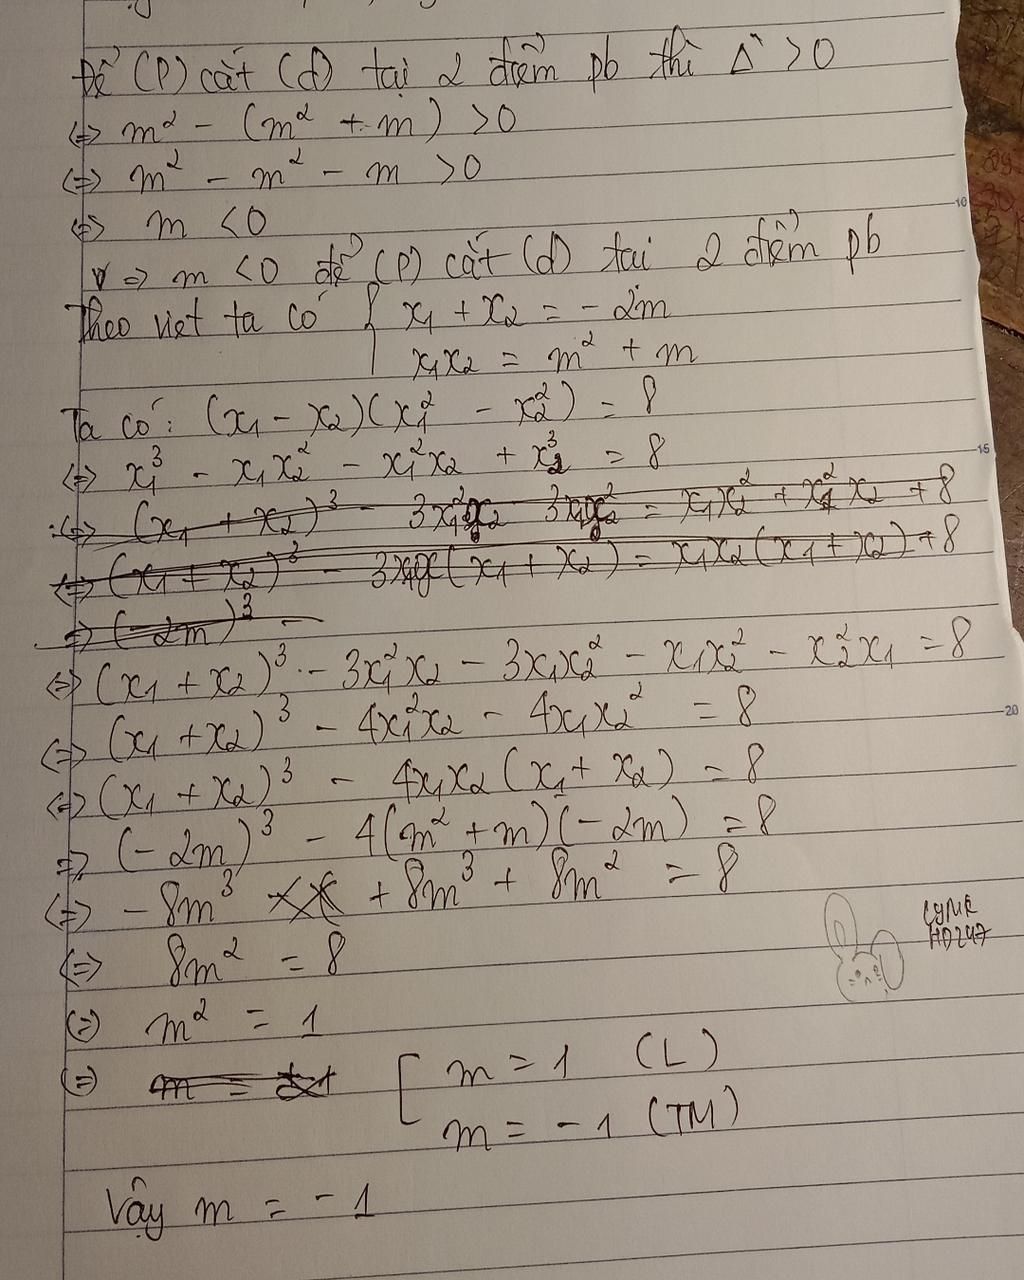 Để (P) cắt (d) tại 2 điểm pb thì Δ' > 0
<=> m² - (m² + m) > 0
<=> m² - m² - m > 0
<=> m < 0
10
=> m < 0 để (P) cắt (d) tại 2 điểm pb
Theo viet ta có { x₁ + x₂ = -2m
x₁x₂ = m² + m
Ta có: (x₁ - x₂)(x₁² - x₂²) = 8
15
<=> x₁³ - x₁x₂² - x₁²x₂ + x₂³ = 8
<=> (x₁ + x₂)³ - 3x₁²x₂ 3x₁x₂² = x₁x₂² + x₁²x₂ + 8
<=> (x₁ + x₂)³ - 3x₁x(x₁ + x₂) = x₁x₂(x₁ + x₂) + 8
=> (-2m)³ -
<=> (x₁ + x₂)³ - 3x₁²x₂ - 3x₁x₂² - x₁x₂² - x₂²x₁ = 8
20
<=> (x₁ + x₂)³ - 4x₁²x₂ - 4x₁x₂² = 8
<=> (x₁ + x₂)³ - 4x₁x₂(x₁ + x₂) = 8
=> (-2m)³ - 4(m² + m)(-2m) = 8
<=> -8m³ + 8m³ + 8m² = 8
<=> 8m² = 8
<=> m² = 1
<=> m = ±1 [ m = 1 (L)
m = -1 (TM)
Vậy m = -1